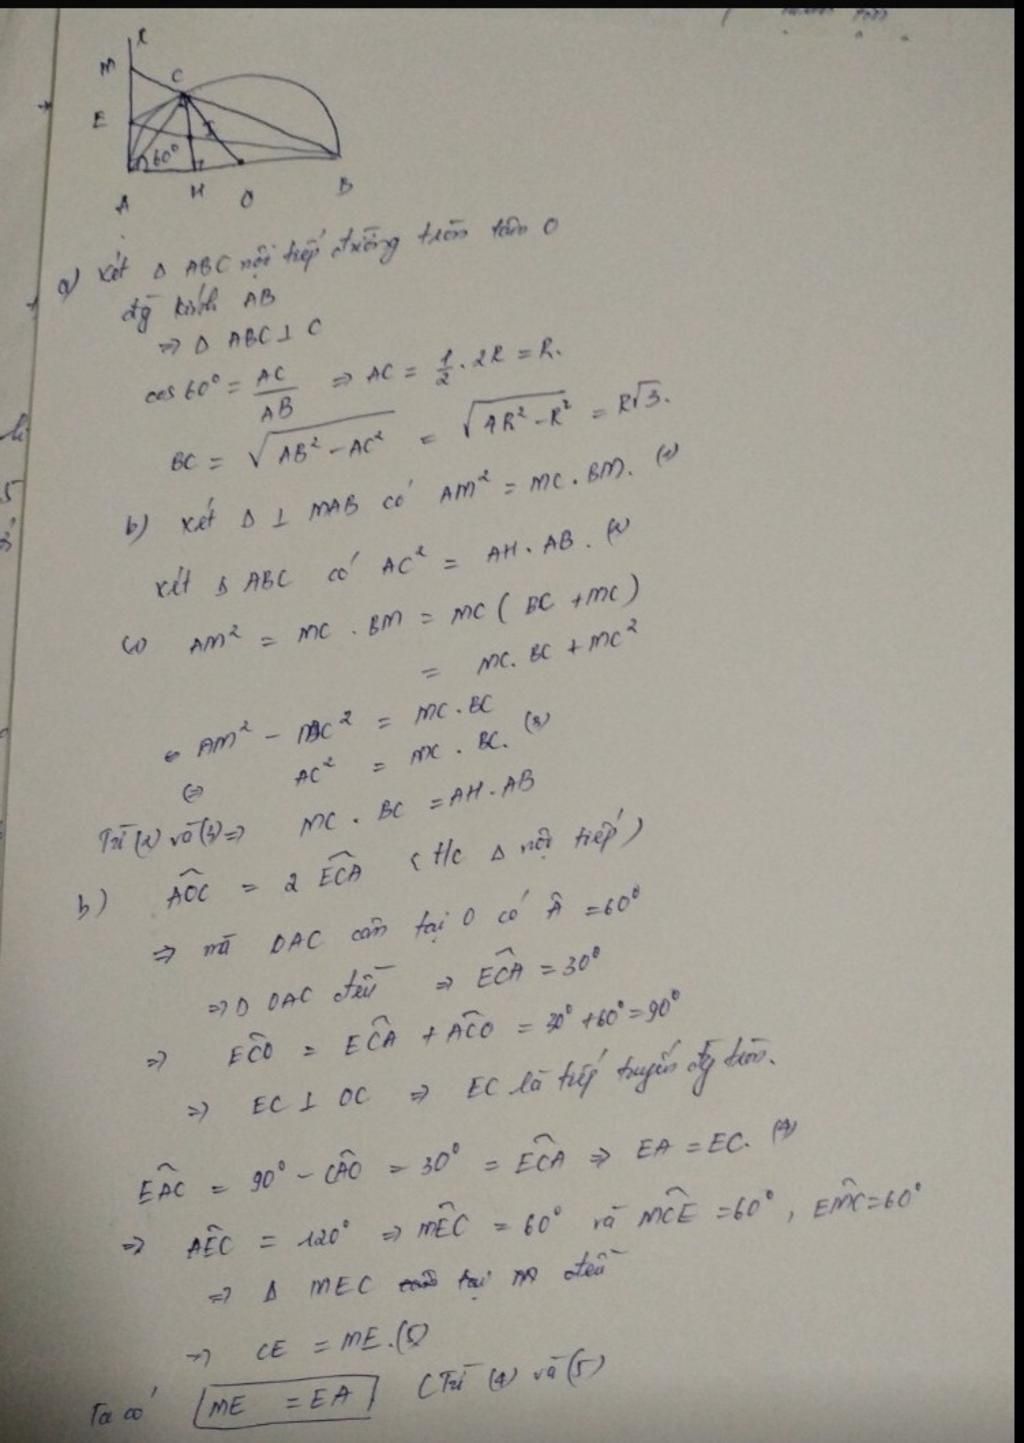 x
M
C
E
I
60°
A
H
O
B
a) Xét Δ ABC nội tiếp đường tròn tâm O
đg kính AB
⇒ Δ ABC ⊥ C
cos 60° = AC/AB ⇒ AC = 1/2 . 2R = R.
BC = √(AB² - AC²) = √(4R² - R²) = R√3.
b) Xét Δ ⊥ MAB có AM² = MC . BM. (1)
Xét Δ ABC có AC² = AH . AB. (2)
(1) AM² = MC . BM = MC ( BC + MC )
= MC. BC + MC²
⇔ AM² - MC² = MC . BC
⇔ AC² = MC . BC. (3)
Từ (2) và (3) ⇒ MC . BC = AH . AB
b) AOC = 2 ECA ( t/c Δ nội tiếp )
⇒ mà OAC cân tại O có Â = 60°
⇒ Δ OAC đều ⇒ ECA = 30°
⇒ ECO = ECA + ACO = 30° + 60° = 90°
⇒ EC ⊥ OC ⇒ EC là tiếp tuyến đg tròn.
EAC = 90° - CAO = 30° = ECA ⇒ EA = EC. (4)
⇒ AEC = 120° ⇒ MEC = 60° và MCE = 60° , EMC = 60°
⇒ Δ MEC tại đều
⇒ CE = ME. (5)
Ta có ME = EA (Từ (4) và (5)